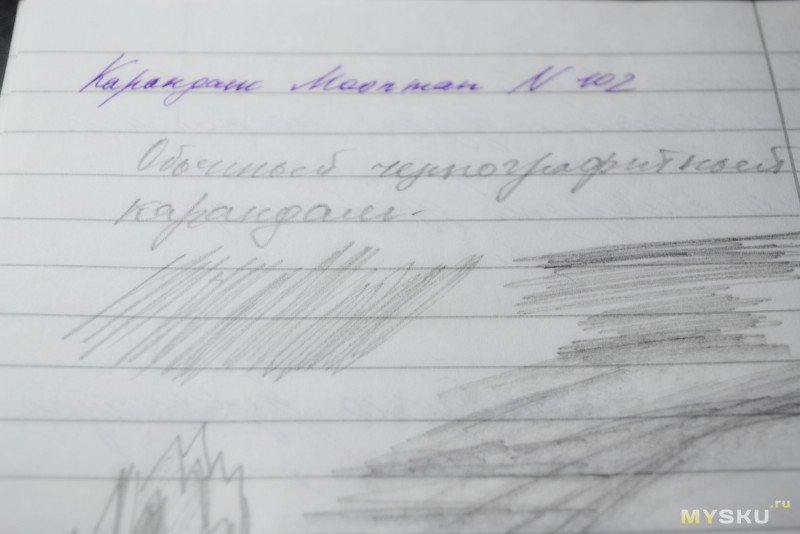 Карандаш Моолтан N 102
Обычный чернографитный
карандаш.
MYSKU.ru